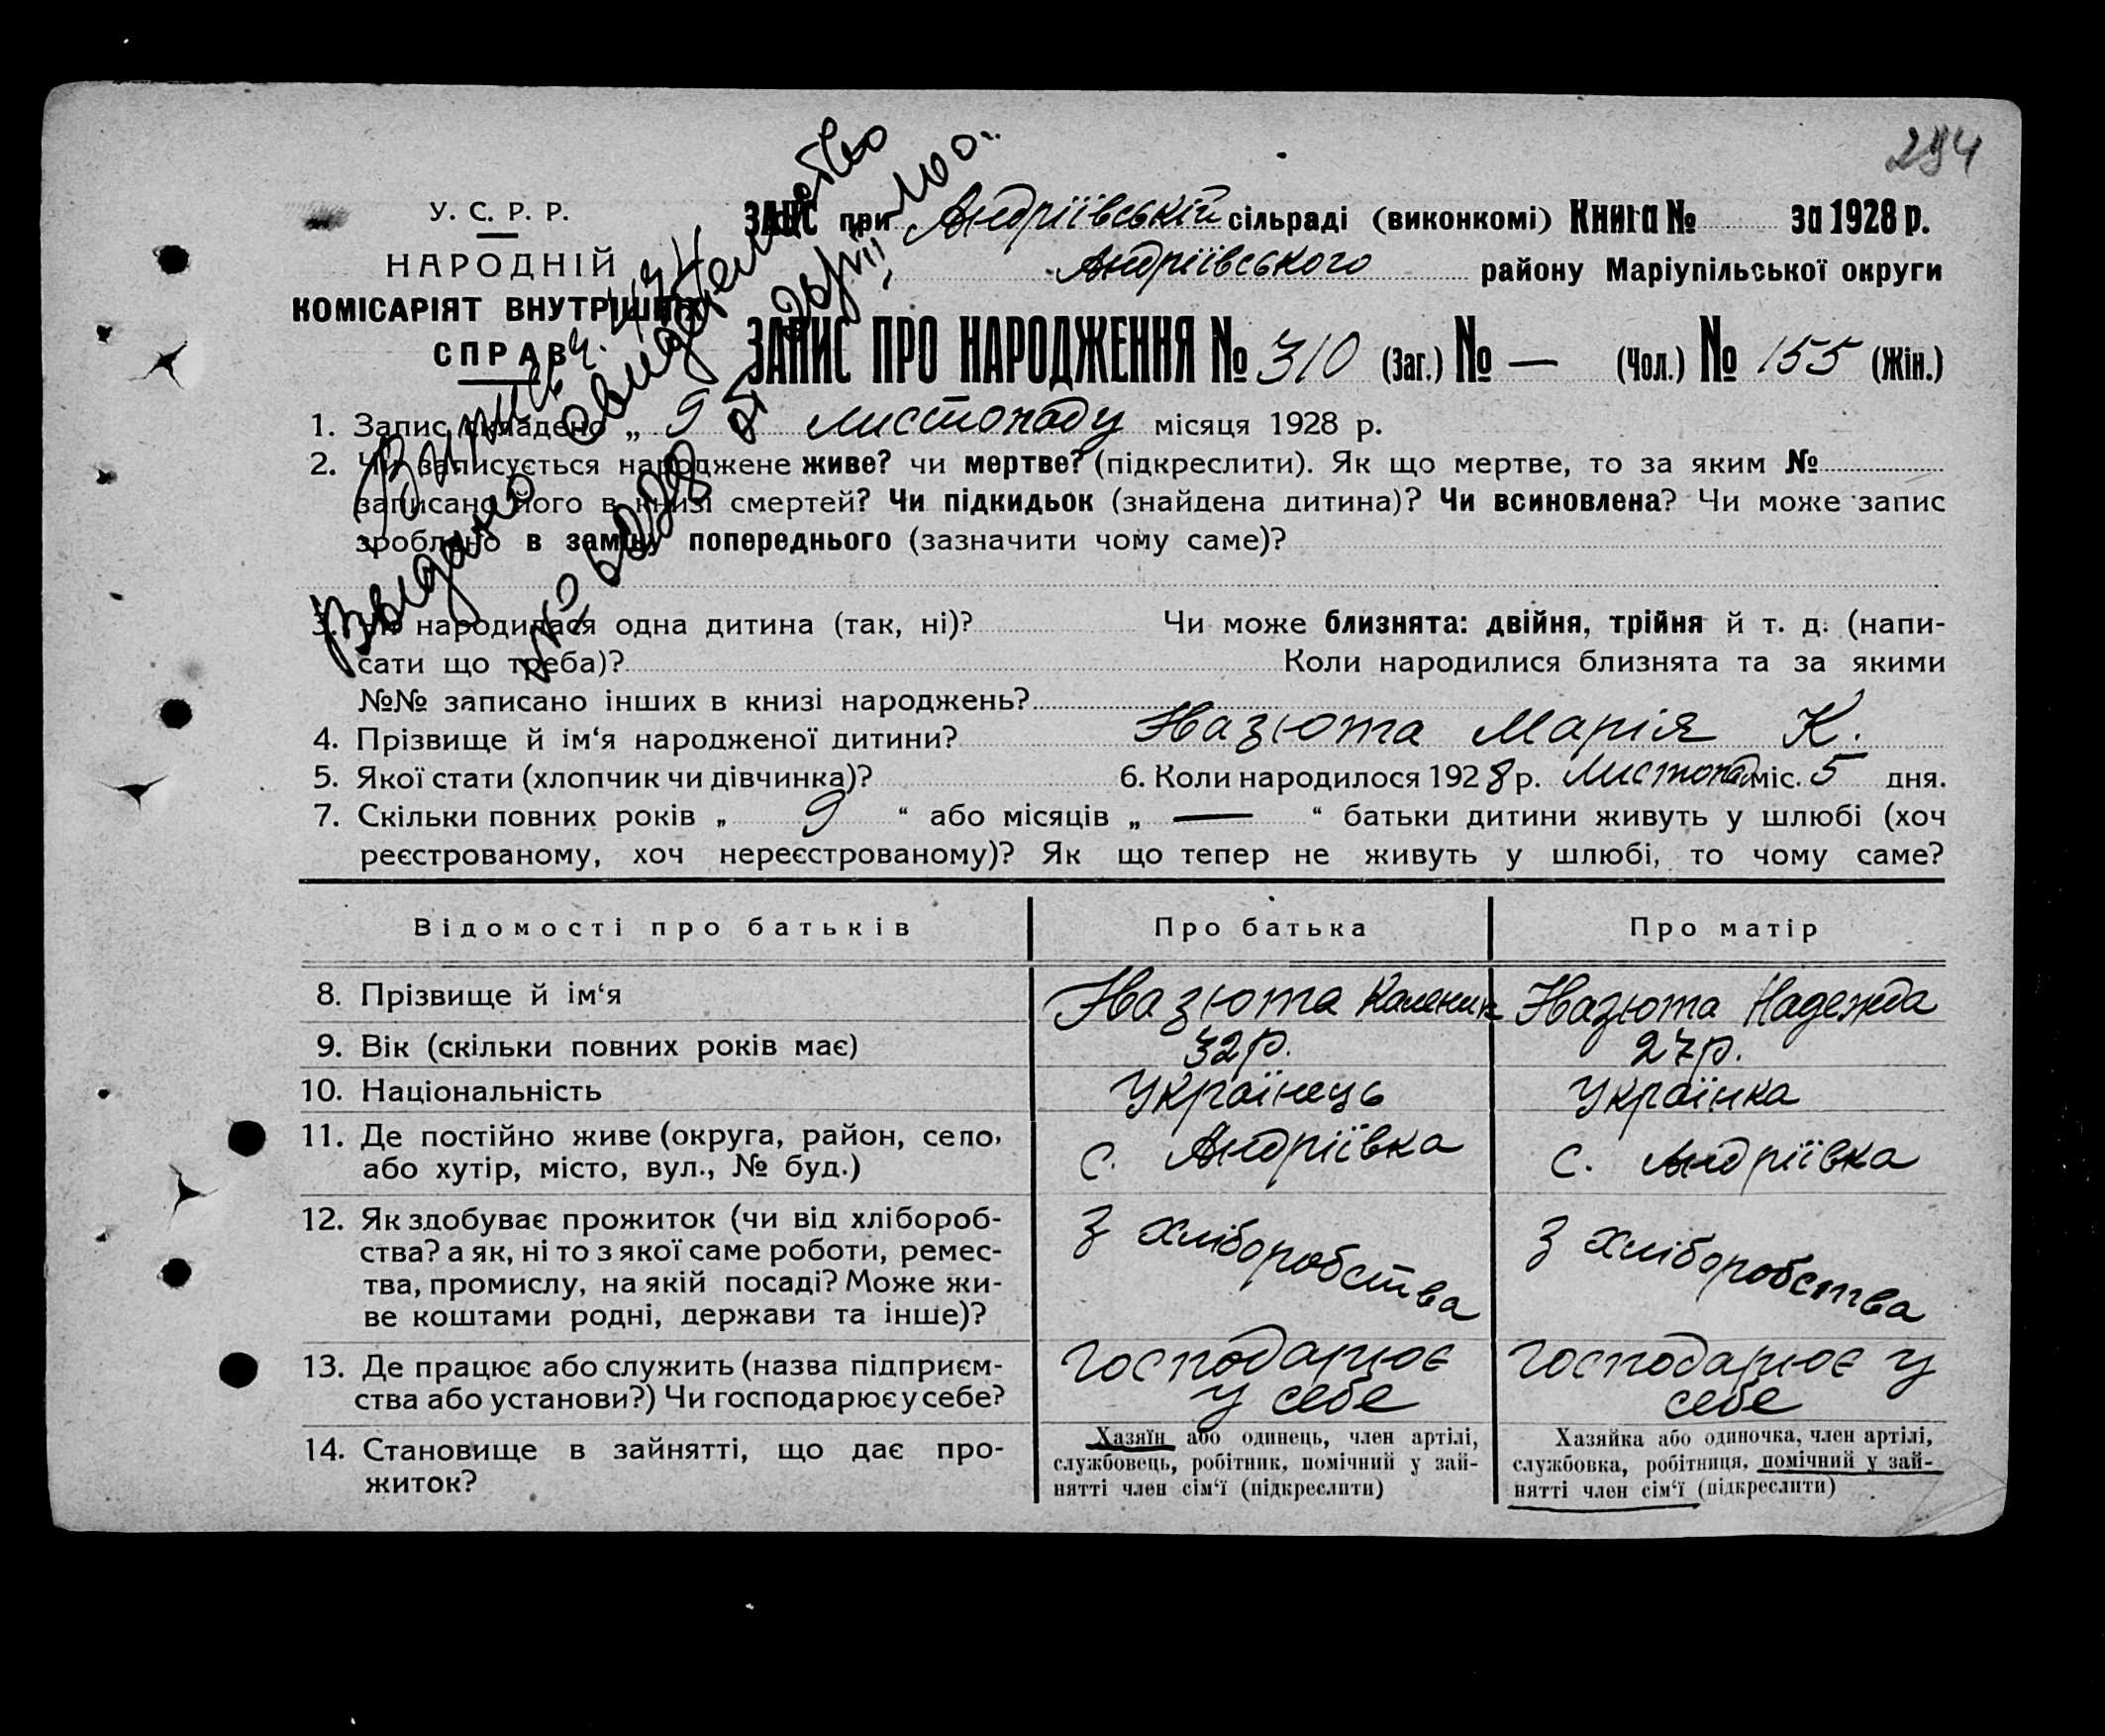 294
У. С. Р. Р.
НАРОДНІЙ
КОМІСАРІЯТ ВНУТРІШНІХ
СПРАВ
ЗАПИС при Андріївській сільраді (виконкомі) Книга № за 1928 р.
Андріївського району Маріупільської округи
ЗАПИС ПРО НАРОДЖЕННЯ № 310 (Заг.) № — (Чол.) № 155 (Жін.)
Выдано свидетельство
1. Запис складено „ 9 листопаду місяця 1928 р.
2. Чи записується народжене живе? чи мертве? (підкреслити). Як що мертве, то за яким №
записано його в книзі смертей? Чи підкидьок (знайдена дитина)? Чи всиновлена? Чи може запис
зроблено в заміну попереднього (зазначити чому саме)?
3. Чи народилася одна дитина (так, ні)? Чи може близнята: двійня, трійня й т. д. (напи-
сати що треба)? Коли народилися близнята та за якими
№№ записано інших в книзі народжень?
4. Прізвище й ім‘я народженої дитини? Назюта Марія К.
5. Якої стати (хлопчик чи дівчинка)? 6. Коли народилося 1928 р. Листопад міс. 5 дня.
7. Скільки повних років „ 9 “ або місяців „ — “ батьки дитини живуть у шлюбі (хоч
реєстрованому, хоч нереєстрованому)? Як що тепер не живуть у шлюбі, то чому саме?
Відомості про батьків Про батька Про матір
8. Прізвище й ім‘я Назюта Каленик Назюта Надежда
9. Вік (скільки повних років має) 32 р. 27 р.
10. Національність Українець Українка
11. Де постійно живе (округа, район, село,
або хутір, місто, вул., № буд.)
с. Андріївка с. Андріївка
12. Як здобуває прожиток (чи від хлібороб-
ства? а як, ні то з якої саме роботи, ремес-
тва, промислу, на якій посаді? Може жи-
ве коштами родні, держави та інше)?
З хліборобства З хліборобства
13. Де працює або служить (назва підприєм-
ства або установи?) Чи господарює у себе?
господарює
у себе
господарює у
себе
14. Становище в зайнятті, що дає про-
житок?
Хазяїн або одинець, член артілі,
службовець, робітник, помічний у зай-
нятті член сім‘ї (підкреслити)
Хазяйка або одиночка, член артілі,
службовка, робітниця, помічний у зай-
нятті член сім‘ї (підкреслити)